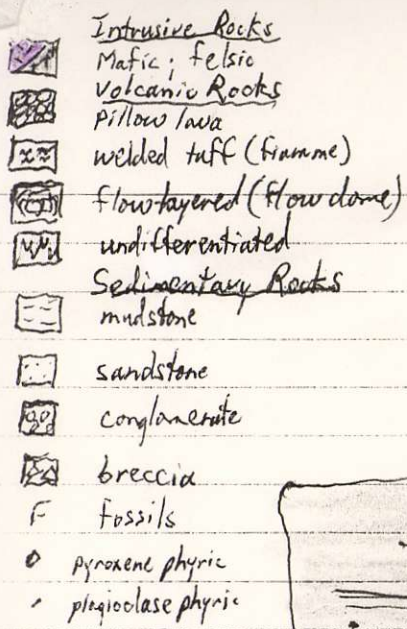 Intrusive Rocks
Mafic; felsic
Volcanic Rocks
Pillow lava
welded tuff (fiamme)
flow layered (flow dome)
undifferentiated
Sedimentary Rocks
mudstone
sandstone
conglomerate
breccia
F fossils
pyroxene phyric
plagioclase phyric